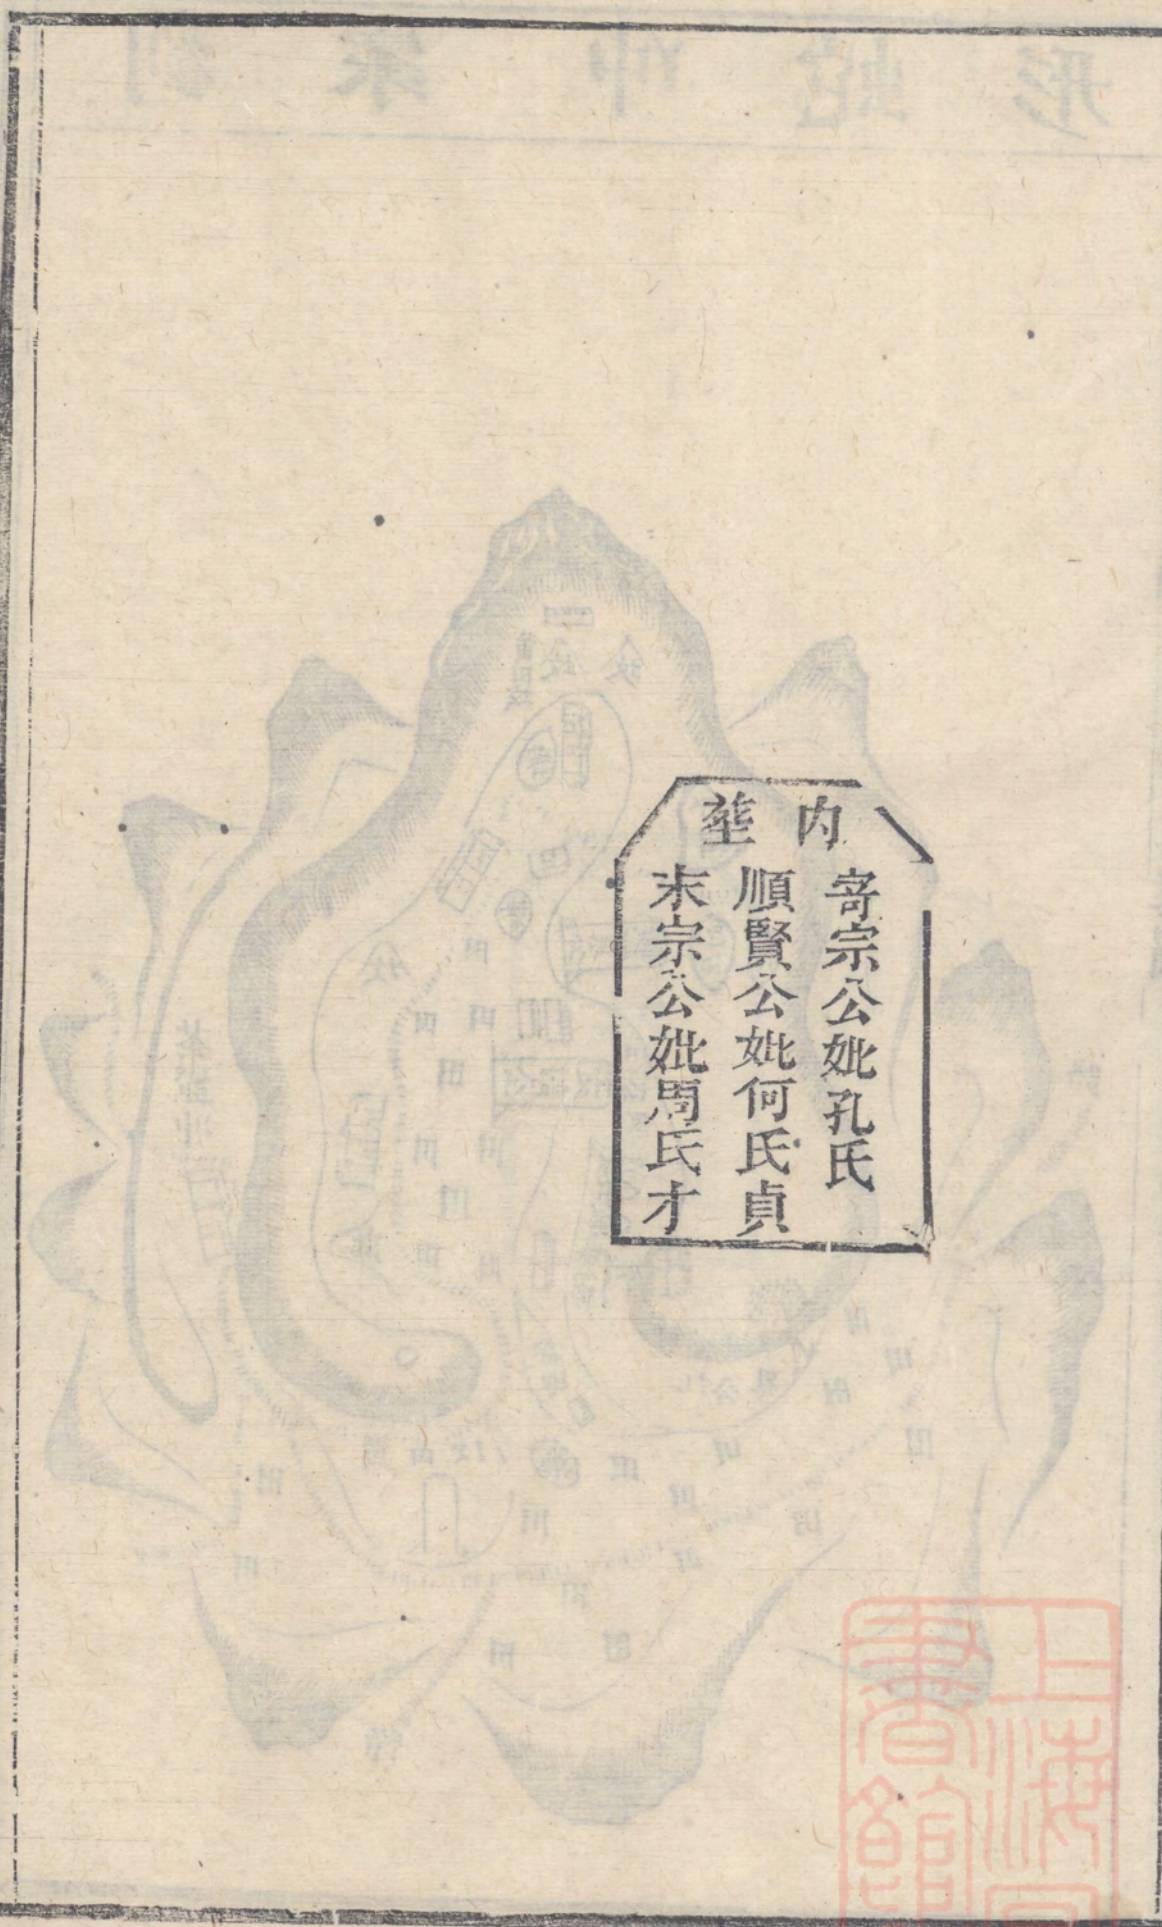 内塟
寄宗公妣孔氏
順賢公妣何氏貞
末宗公妣周氏才
上海
書館